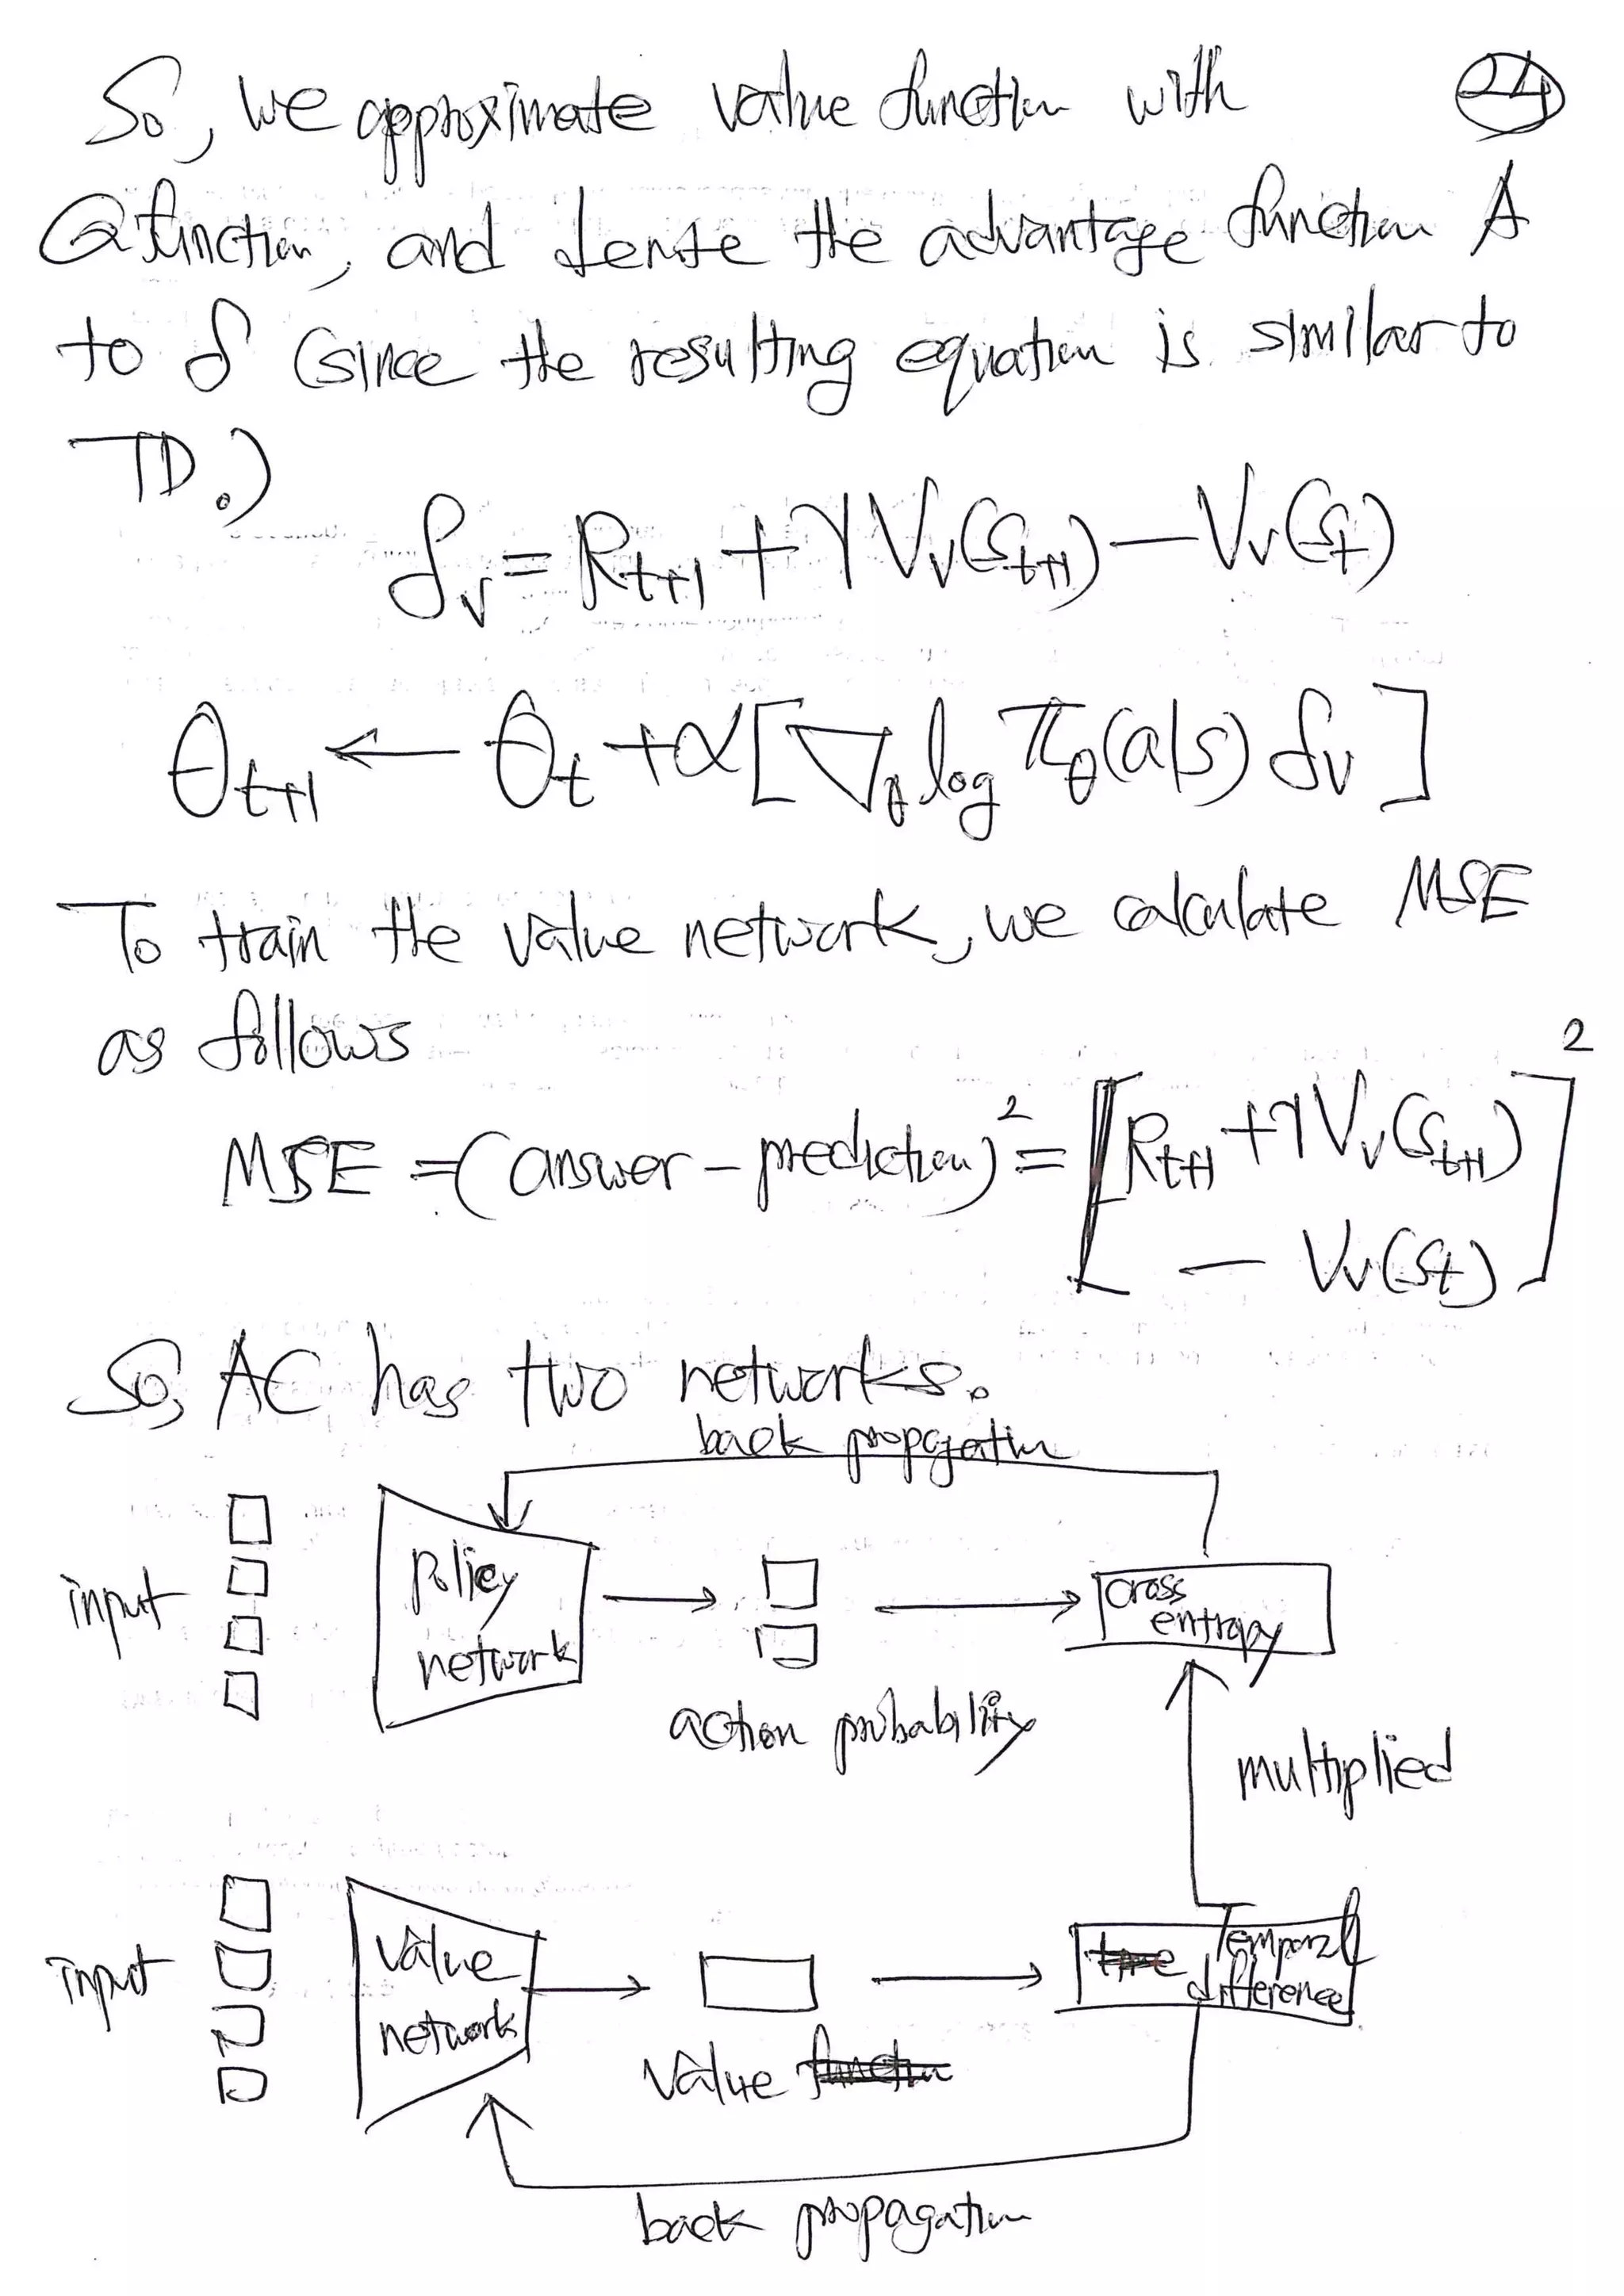 So, we approximate value function with
24
Q function, and denote the advantage function A
to δ (since the resulting equation is similar to
TD.)
δv = Rt+1 + γVv(St+1) − Vv(St)
θt+1 ← θt + α[∇θ log πθ(a|s) δv]
To train the value network, we calculate MSE
as follows
MSE = (answer − prediction)² = [Rt+1 + γVv(St+1)
− Vv(St)]²
So, AC has two networks.
back propagation
input
policy
network
action probability
cross
entropy
multiplied
input
value
network
value
Temporal
difference
back propagation